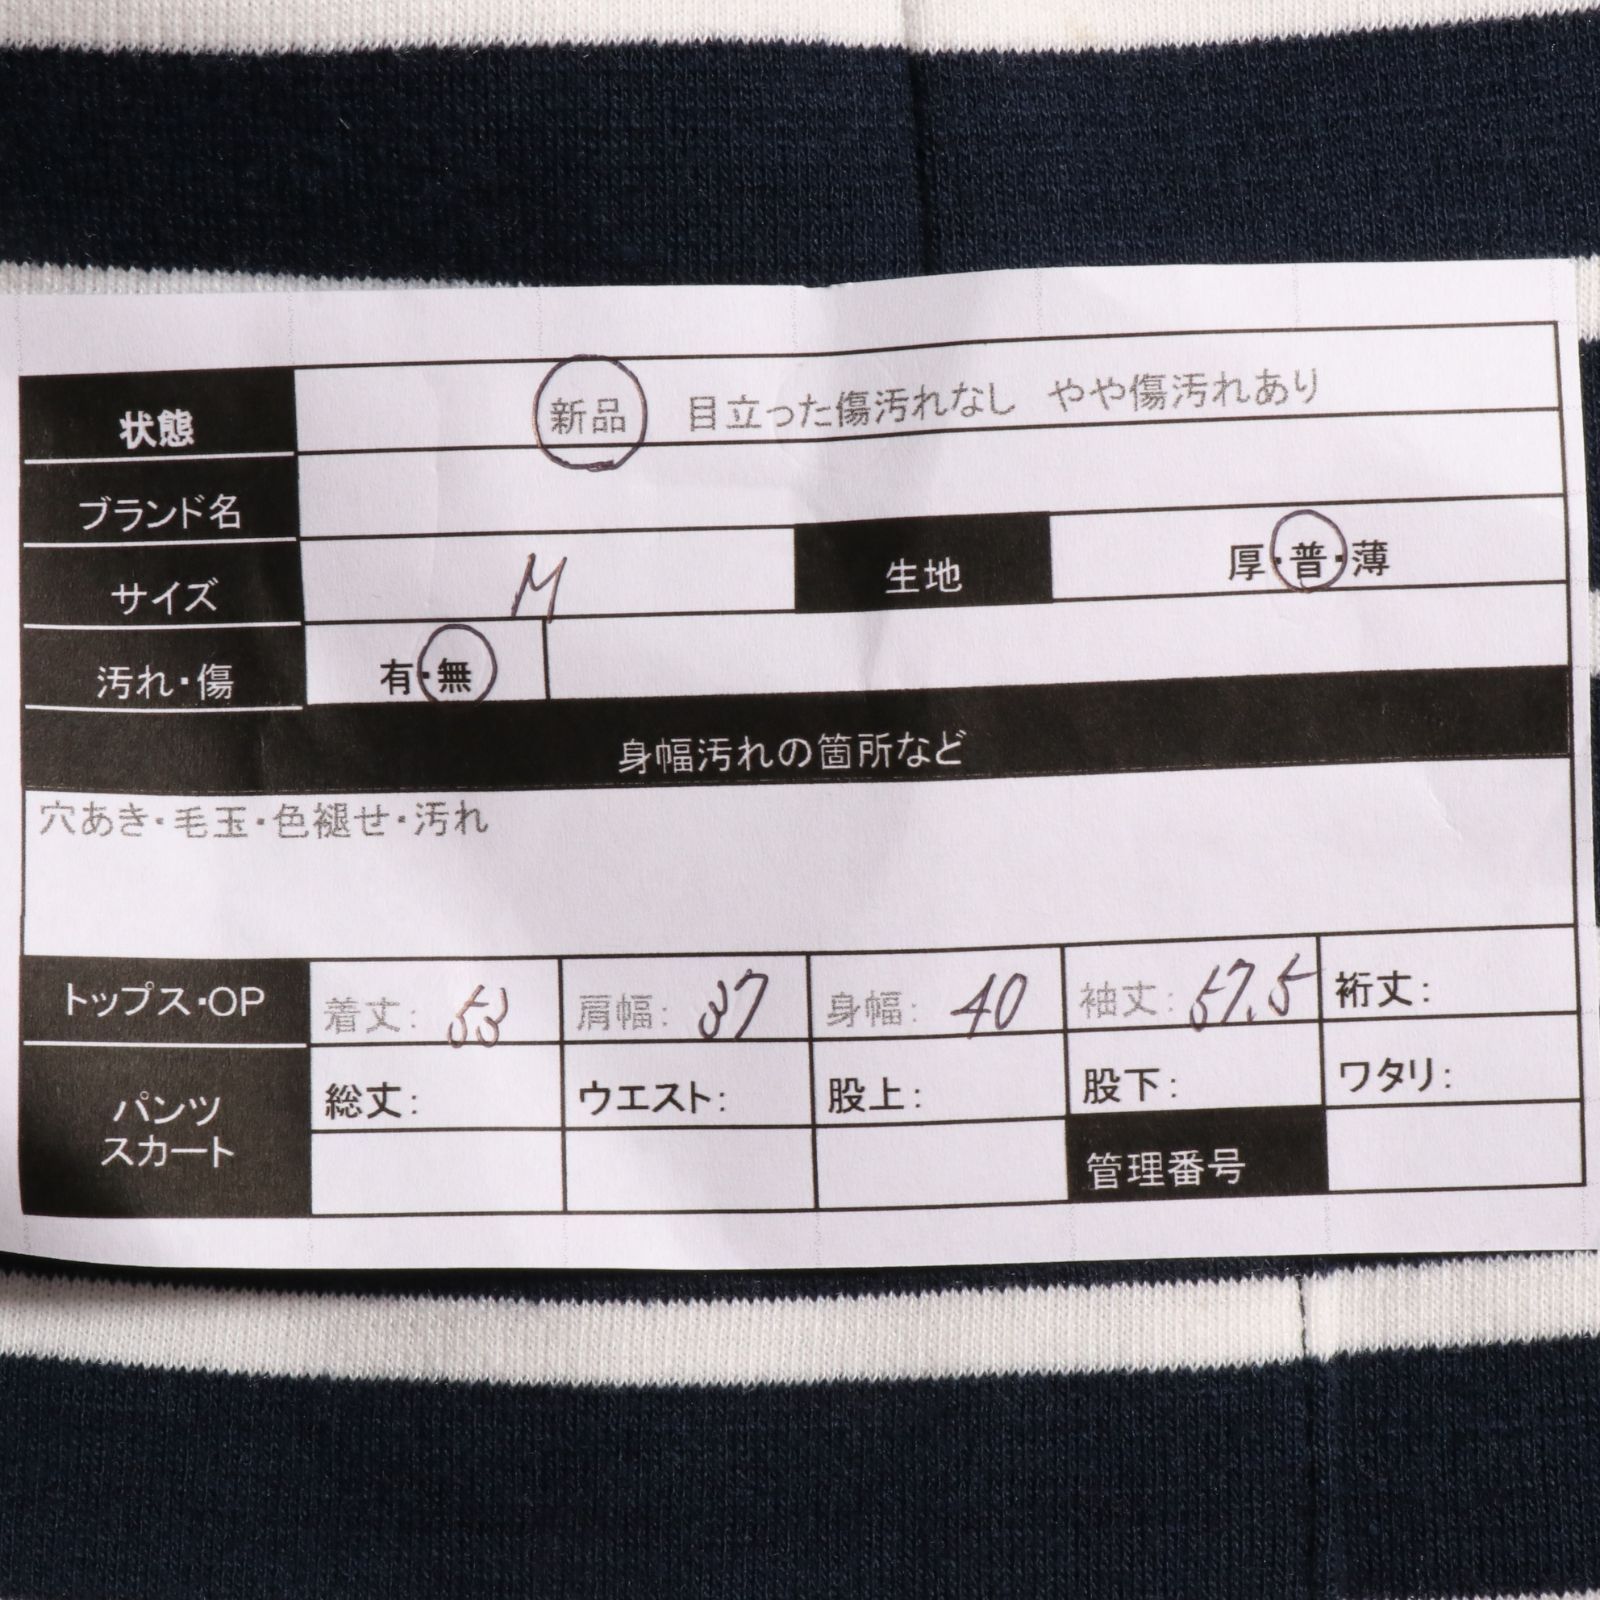 状態 新品 目立った傷汚れなし やや傷汚れあり
ブランド名
サイズ M 生地 厚・普・薄
汚れ・傷 有・無
身幅汚れの箇所など
穴あき・毛玉・色褪せ・汚れ
トップス・OP 着丈: 53 肩幅: 37 身幅: 40 袖丈: 57.5 裄丈:
パンツ スカート 総丈: ウエスト: 股上: 股下: ワタリ:
管理番号